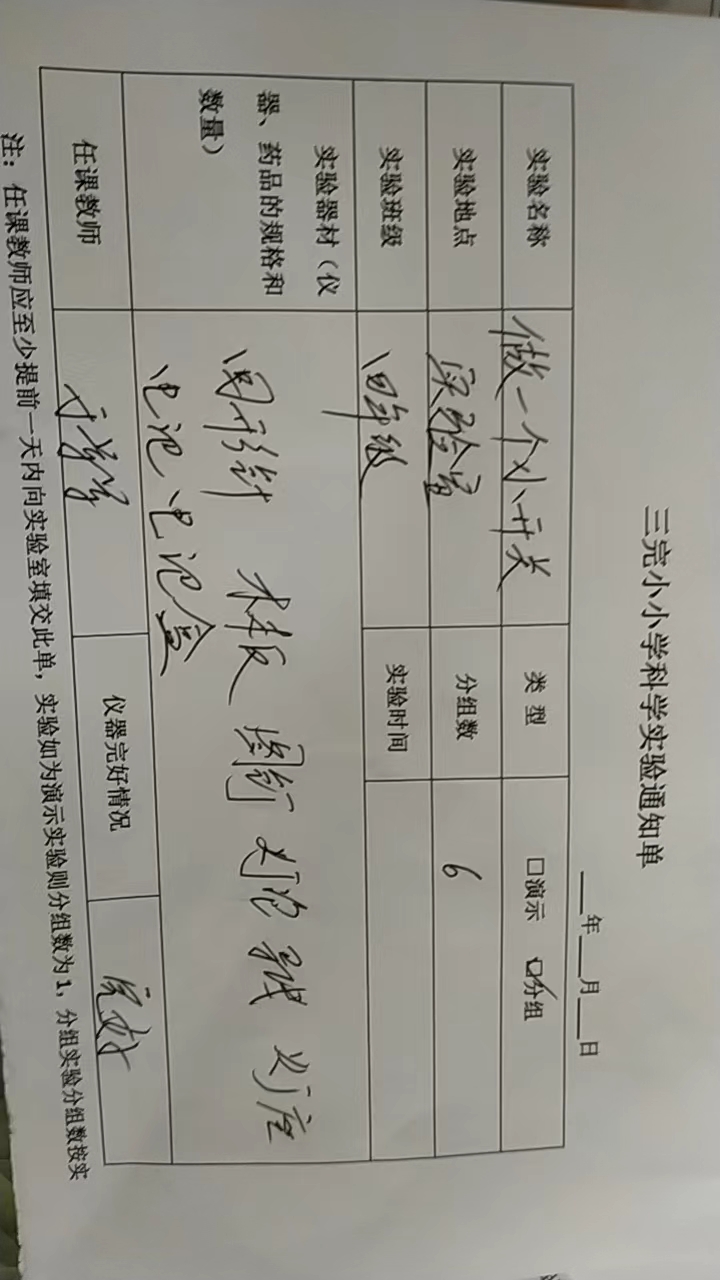 三完小小学科学实验通知单
___年___月___日
实验名称 做一个小开关 类 型 □演示 ☑分组
实验地点 实验室 分组数 6
实验班级 四年级 实验时间
实验器材（仪
器、药品的规格和
数量）
回形针 木板 图钉 灯泡 导线 灯座
电池 电池盒
任课教师 仪器完好情况 完好
注：任课教师应至少提前一天内向实验室填交此单，实验如为演示实验则分组数为1，分组实验分组数按实